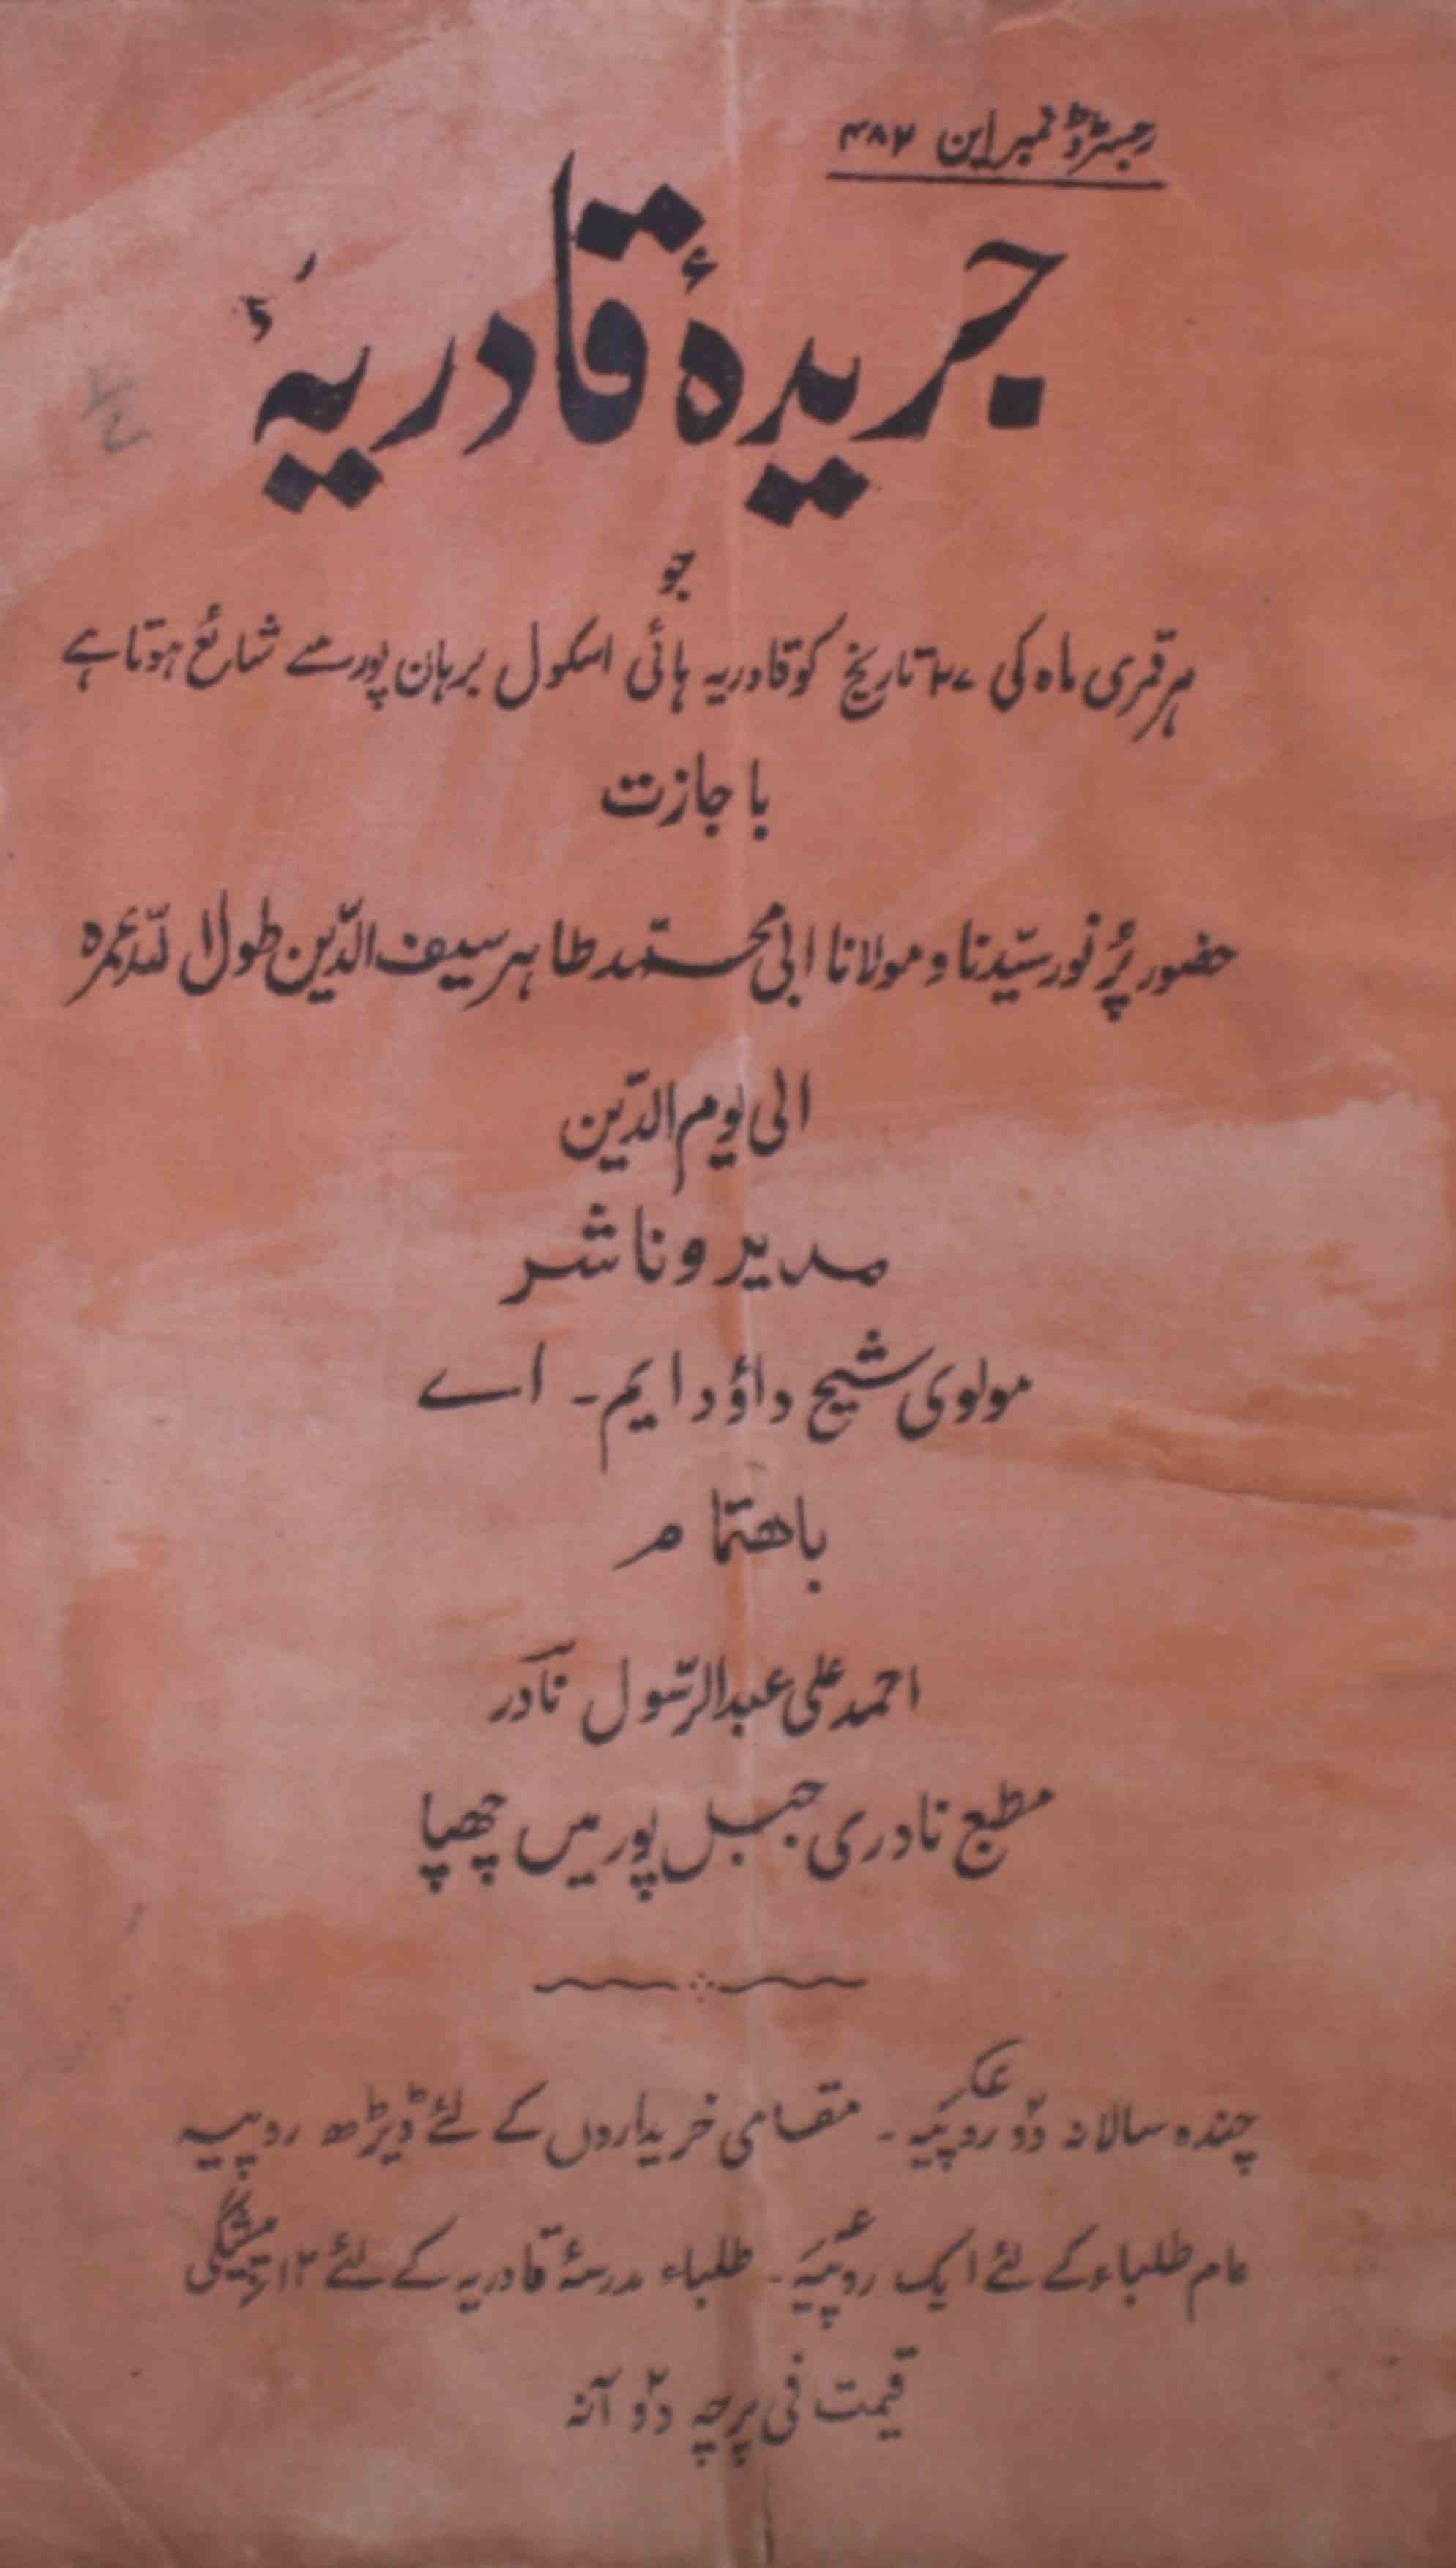 رجسٹرڈ نمبر این ۴۸۷
جریدۂ قادریہ
جو
ہر قمری ماہ کی ۲۷ تاریخ کو قادریہ ہائی اسکول برہان پور سے شائع ہوتا ہے
باجازت
حضور پُر نور سیّدنا و مولانا ابی محمّد طاہر سیف الدّین طول اللہ عمرہ
الی یوم الدّین
مدیر و ناشر
مولوی شیخ داؤد ایم۔ اے
باھتمام
احمد علی عبدالرّسول نادر
مطبع نادری جبل پور میں چھپا
چندہ سالانہ دو روپیہ۔ مقامی خریداروں کے لئے ڈیڑھ روپیہ
عام طلباء کے لئے ایک روپیہ۔ طلباء مدرسۂ قادریہ کے لئے ۱۲ پیشگی
قیمت فی پرچہ دو آنہ